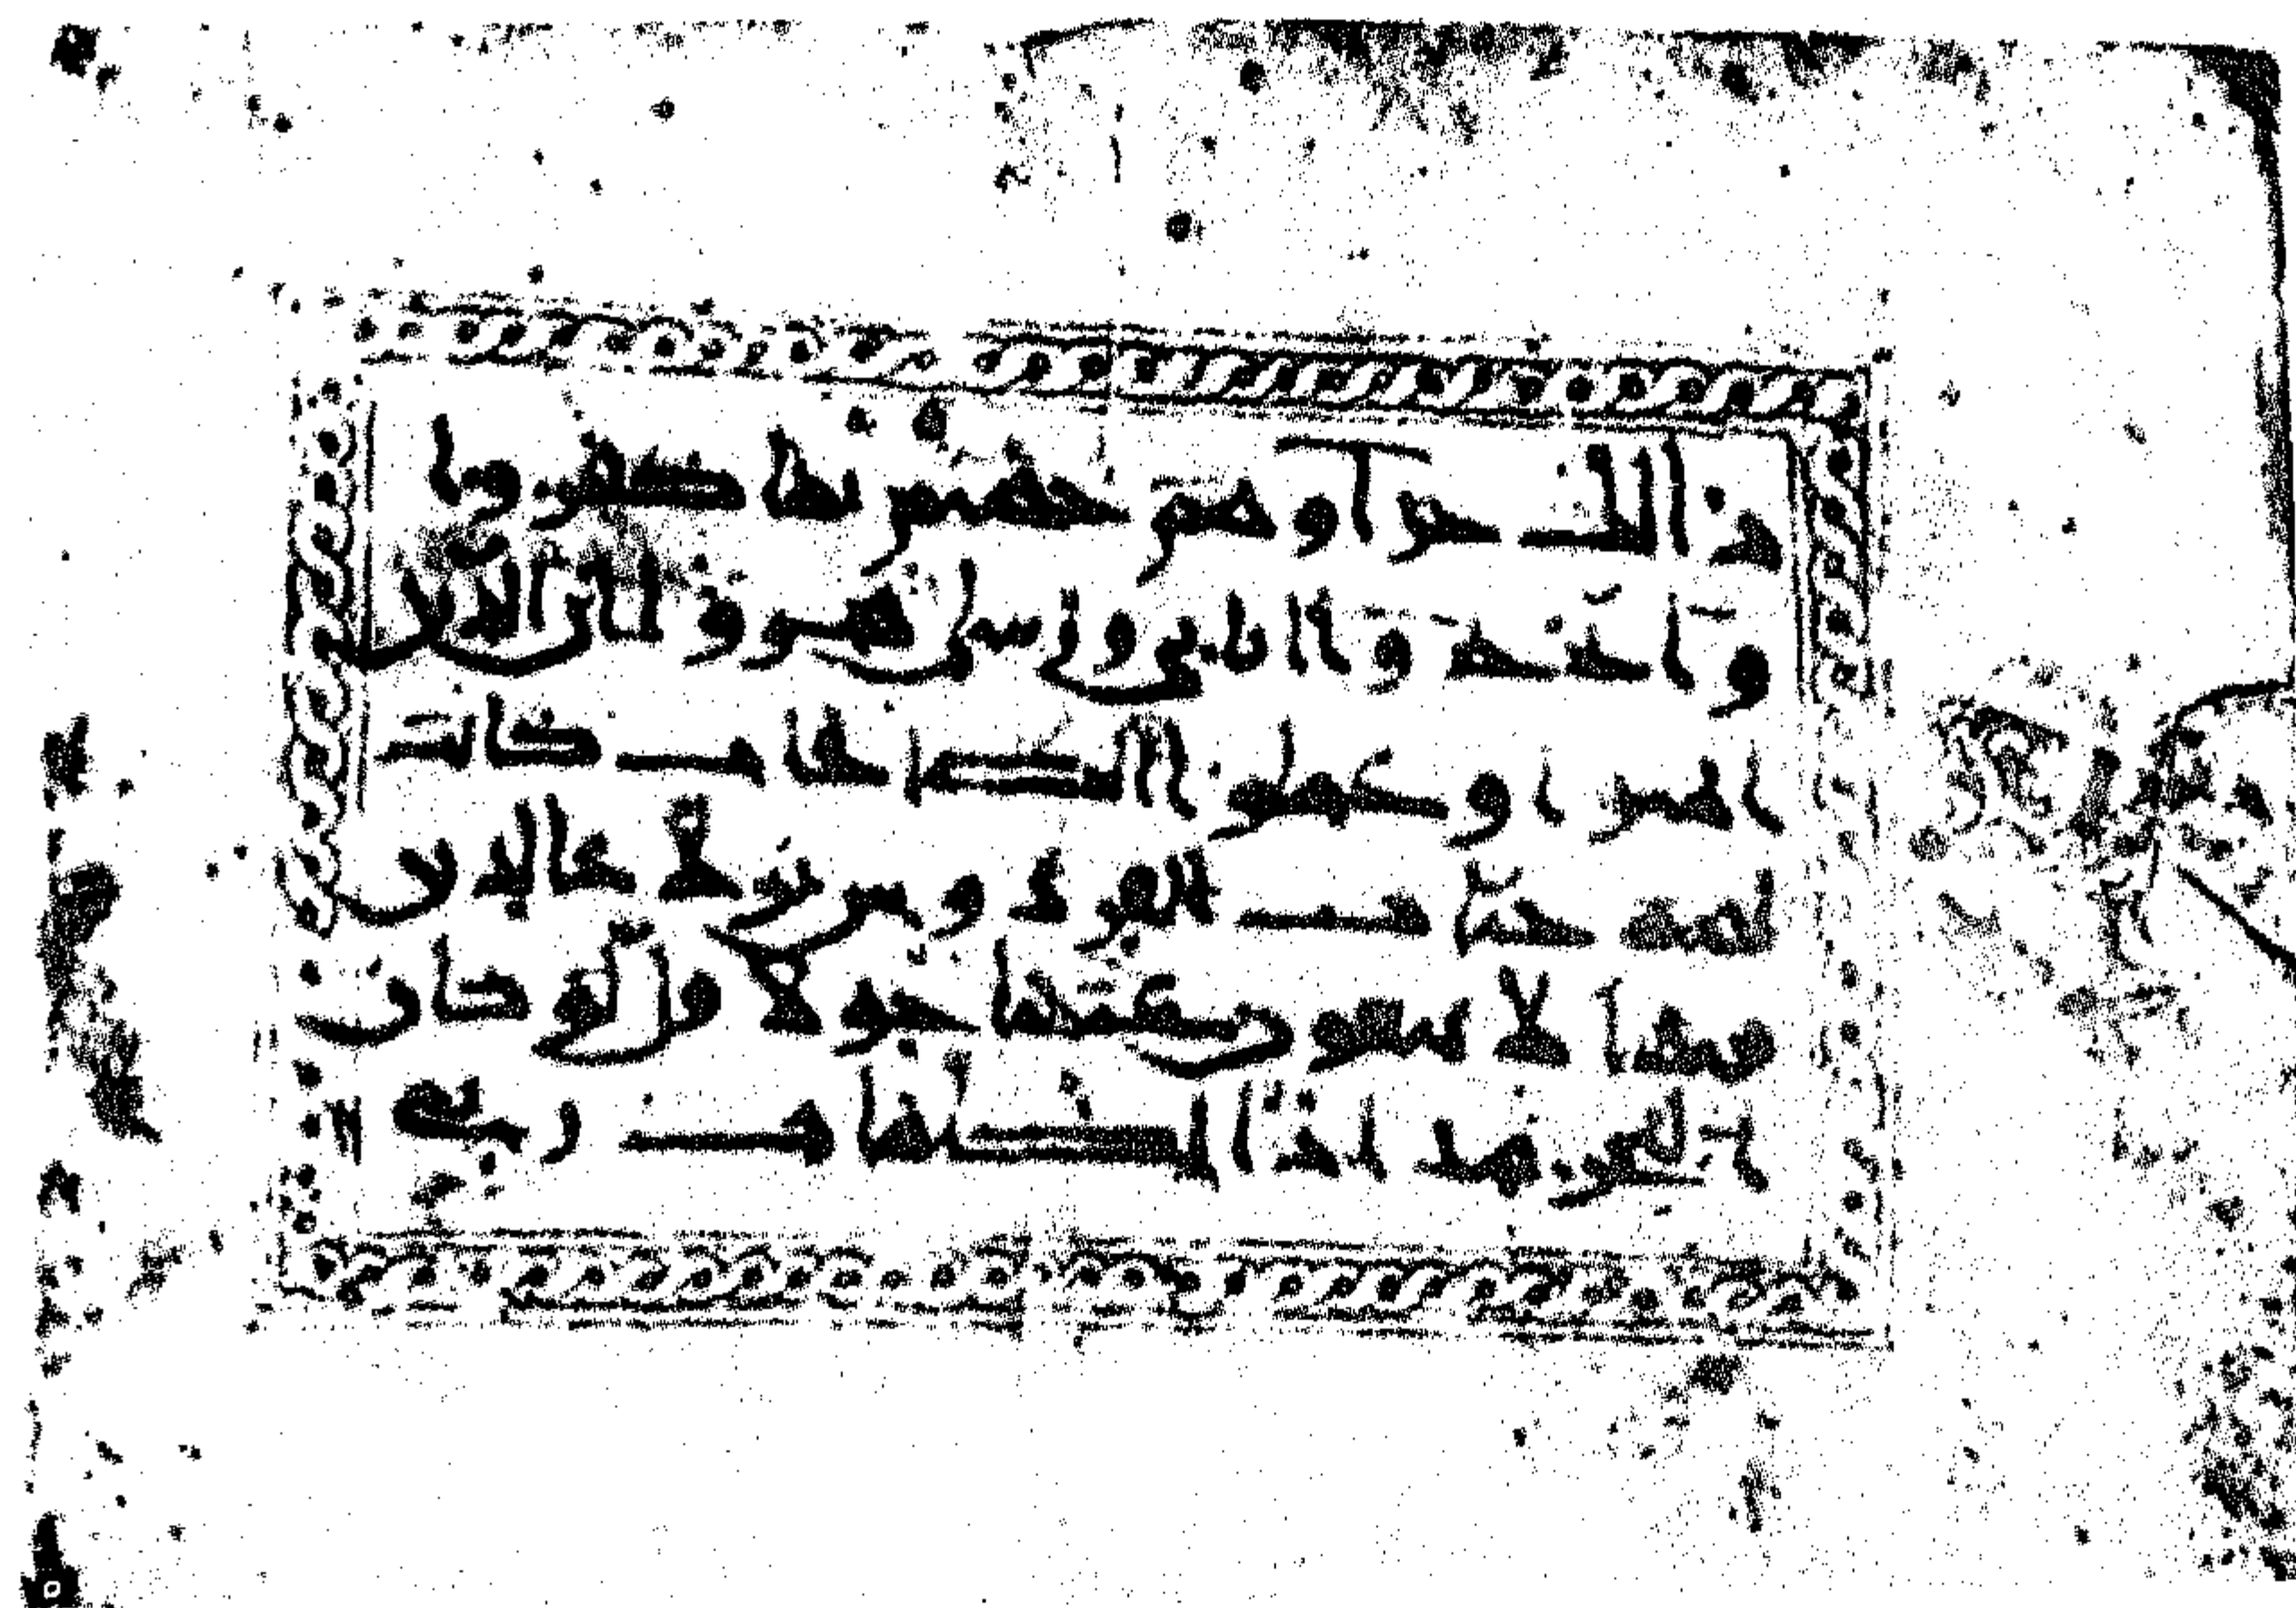 ذالك جزاوهم جهنم بما كفروا
واتخذوا اايتي ورسلي هزوا ان الذين
امنوا وعملوا الصلحات كانت
لهم جنات الفردوس نزلا خالدين
فيها لا يبغون عنها حولا قل لو كان
البحر مدادا لكلمات ربي